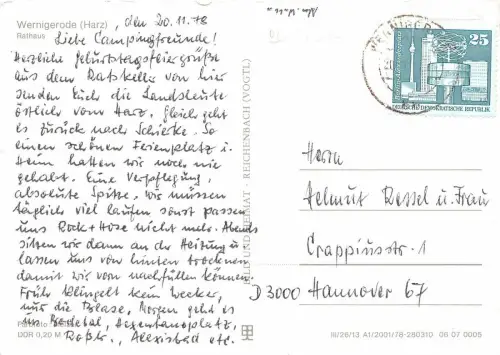 Wernigerode (Harz)
Rathaus
, den 20.11.78
Liebe Campingfreunde!
Herzliche Geburtstagsfeiergrüße
aus dem Ratskeller von hier
senden Euch die Landsleute
östlich vom Harz. Gleich geht
es zurück nach Schierke. So
einen schönen Ferienplatz u.
Heim hatten wir noch nie
gehabt. Eine Verpflegung,
absolute Spitze. Wir müssen
täglich viel laufen sonst passen
uns Rock + Hose nicht mehr. Abends
sitzen wir dann an der Heizung u.
lassen uns von hinten trocknen
damit wir vorn nachfüllen können.
Früh klingelt kein Wecker,
nur die Blase. Morgen geht es
ins Bodetal, Hexentanzplatz,
Roßtr., Alexisbad etc.
DDR 0,20 M
BILD UND HEIMAT · REICHENBACH (VOGTL)
25
DEUTSCHE DEMOKRATISCHE REPUBLIK
Herrn
Helmut Ressel u. Frau
Crappiusstr. 1
D 3000 Hannover 67
III/26/13 A1/2001/78-280310 06 07 0005